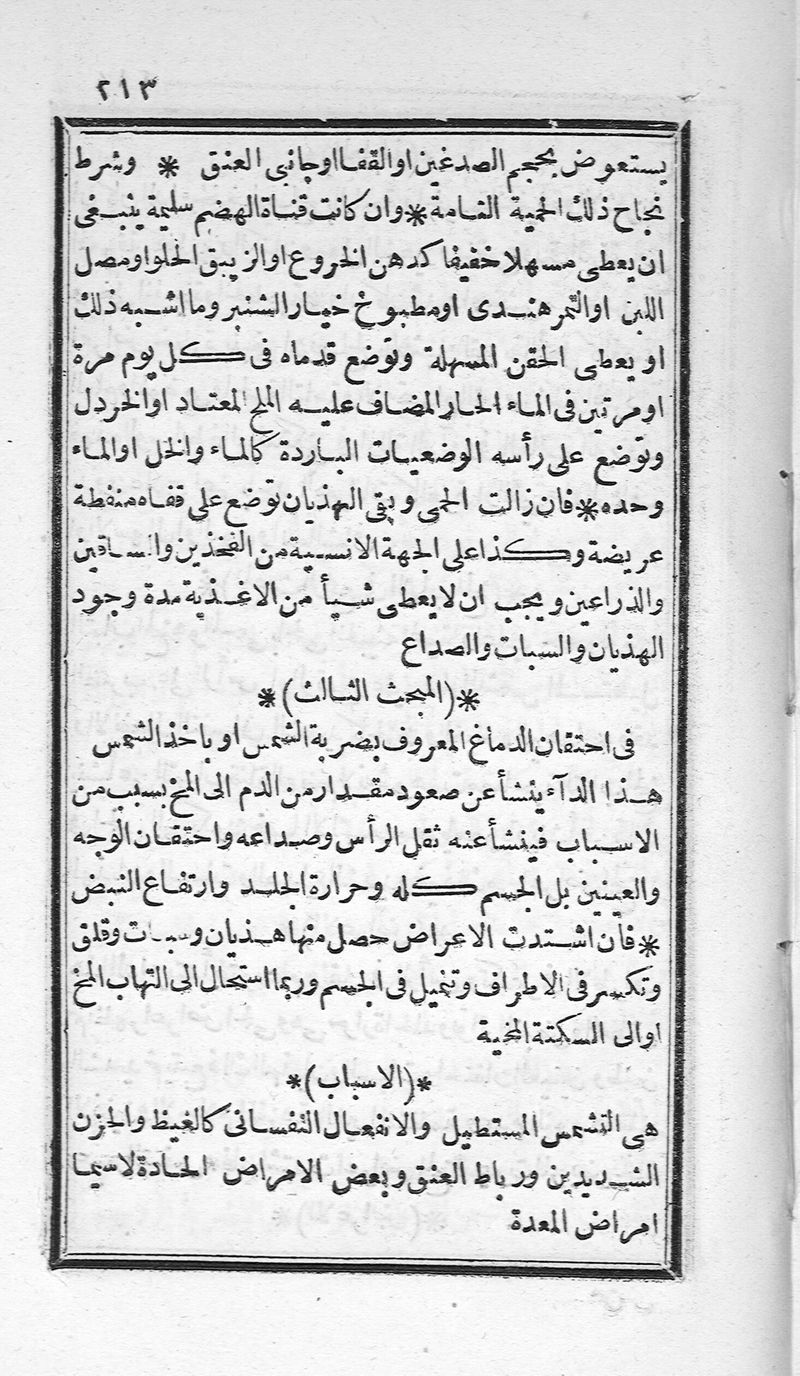 ٢١٣
يستعوض بحجم الصدغين او القفا او جانبى العنق * وشرط
نجاح ذلك الحمية التامة * وان كانت قناة الهضم سليمة ينبغى
ان يعطى مسهلا خفيفا كدهن الخروع او الزيبق الحلو او مصل
اللبن او التمر هندى او مطبوخ خيار الشنبر وما اشبه ذلك
او يعطى الحقن المسهلة وتوضع قدماه فى كل يوم مرة
او مرتين فى الماء الحار المضاف عليه الملح المعتاد او الخردل
وتوضع على رأسه الوضعيات الباردة كالماء والخل او الماء
وحده * فان زالت الحمى وبقى الهذيان توضع على قفاه منفطة
عريضة وكذا على الجهة الانسية من الفخذين والساقين
والذراعين ويجب ان لا يعطى شيأ من الاغذية مدة وجود
الهذيان والسبات والصداع
*(المبحث الثالث)*
فى احتقان الدماغ المعروف بضربة الشمس او باخذ الشمس
هذا الدآء ينشأ عن صعود مقدار من الدم الى المخ بسبب من
الاسباب فينشأ عنه ثقل الرأس وصداعه واحتقان الوجه
والعينين بل الجسم كله وحرارة الجلد وارتفاع النبض
* فان اشتدت الاعراض حصل منها هذيان وسبات وقلق
وتكسر فى الاطراف وتنميل فى الجسم وربما استحال الى التهاب المخ
او الى السكتة المخية
*(الاسباب)*
هى التشمس المستطيل والانفعال النفسانى كالغيظ والحزن
الشديدين ورباط العنق وبعض الامراض الحادة لاسيما
امراض المعدة